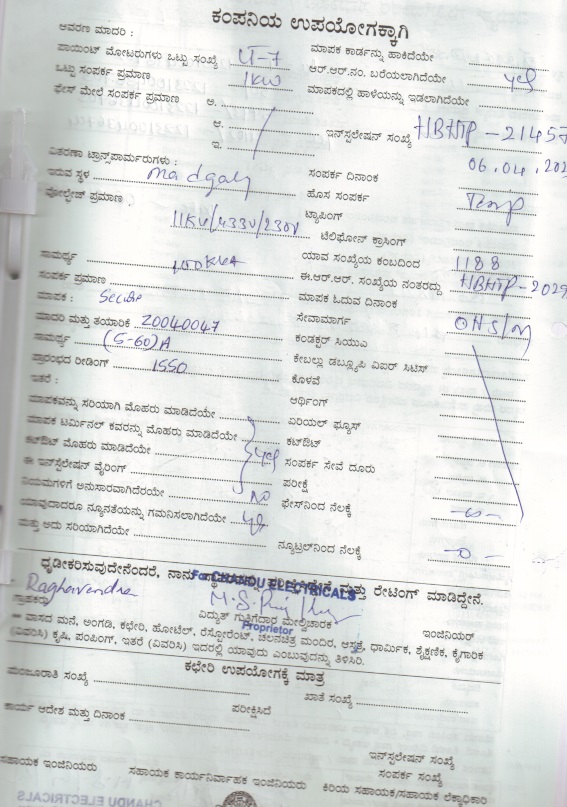 ಕಂಪನಿಯ ಉಪಯೋಗಕ್ಕಾಗಿ
ಆವರಣ ಮಾದರಿ :
ಪಾಯಿಂಟ್ ಮೋಟರುಗಳು ಒಟ್ಟು ಸಂಖ್ಯೆ LT-7 ಮಾಪಕ ಕಾರ್ಡನ್ನು ಹಾಕಿದೆಯೇ
ಒಟ್ಟು ಸಂಪರ್ಕ ಪ್ರಮಾಣ 1KW ಆರ್.ಆರ್.ನಂ. ಬರೆಯಲಾಗಿದೆಯೇ yes
ಫೇಸ್ ಮೇಲೆ ಸಂಪರ್ಕ ಪ್ರಮಾಣ ಅ. ಮಾಪಕದಲ್ಲಿ ಹಾಳೆಯನ್ನು ಇಡಲಾಗಿದೆಯೇ
ಆ.
ಇ. ಇನ್‌ಸ್ಟಲೇಷನ್ ಸಂಖ್ಯೆ HBHTP-21457
ವಿತರಣಾ ಟ್ರಾನ್ಸ್‌ಪಾರ್ಮರುಗಳು : 06.04.202
ಇರುವ ಸ್ಥಳ Madgalj ಸಂಪರ್ಕ ದಿನಾಂಕ
ವೋಲ್ಟೇಜ್ ಪ್ರಮಾಣ ಹೊಸ ಸಂಪರ್ಕ Temp
11KV/433V/230V ಟ್ಯಾಪಿಂಗ್
ಟೆಲಿಫೋನ್ ಕ್ರಾಸಿಂಗ್
ಸಾಮರ್ಥ್ಯ 100KVA ಯಾವ ಸಂಖ್ಯೆಯ ಕಂಬದಿಂದ 1188
ಸಂಪರ್ಕ ಪ್ರಮಾಣ ಈ.ಆರ್.ಆರ್. ಸಂಖ್ಯೆಯ ನಂತರದ್ದು HBHTP-2029
ಮಾಪಕ : Secure ಮಾಪಕ ಓದುವ ದಿನಾಂಕ
ಮಾದರಿ ಮತ್ತು ತಯಾರಿಕೆ 20040047 ಸೇವಾಮಾರ್ಗ
ಸಾಮರ್ಥ್ಯ (5-60)A ಕಂಡಕ್ಟರ್ ಸಿಯುಎ
ಪ್ರಾರಂಭದ ರೀಡಿಂಗ್ 1550 ಕೇಬಲ್ಲು ಡಬ್ಲ್ಯೂಪಿ ವಿಐರ್ ಸಿಟಿಸ್
ಇತರೆ : ಕೊಳವೆ
ಆರ್ಥಿಂಗ್
ಮಾಪಕವನ್ನು ಸರಿಯಾಗಿ ಮೊಹರು ಮಾಡಿದೆಯೇ ಏರಿಯಲ್ ಫ್ಯೂಸ್
ಮಾಪಕ ಟರ್ಮಿನಲ್ ಕವರನ್ನು ಮೊಹರು ಮಾಡಿದೆಯೇ ಕಟ್‌ಔಟ್
ಕಟ್‌ಔಟ್ ಮೊಹರು ಮಾಡಿದೆಯೇ yes ಸಂಪರ್ಕ ಸೇವೆ ದೂರು
ಈ ಇನ್‌ಸ್ಟಲೇಷನ್ ವೈರಿಂಗ್ ಪರೀಕ್ಷೆ
ನಿಯಮಗಳಿಗೆ ಅನುಸಾರವಾಗಿದೆರಯೇ NO ಫೇಸ್‌ನಿಂದ ನೆಲಕ್ಕೆ
ಯಾವುದಾದರೂ ನ್ಯೂನತೆಯನ್ನು ಗಮನಿಸಲಾಗಿದೆಯೇ yes
ಮತ್ತು ಅದು ಸರಿಯಾಗಿದೆಯೇ ನ್ಯೂಟ್ರಲ್‌ನಿಂದ ನೆಲಕ್ಕೆ -0-
ಧೃಡೀಕರಿಸುವುದೇನೆಂದರೆ, ನಾನು ಮತ್ತು ರೇಟಿಂಗ್ ಮಾಡಿದ್ದೇನೆ.
For CHANDU ELECTRICALS
Raghavendra
ಗ್ರಾಹಕರು ವಿದ್ಯುತ್ ಗುತ್ತಿಗೆದಾರ ಮೇಲ್ವಿಚಾರಕ ಇಂಜಿನಿಯರ್
Proprietor
ವಾಸದ ಮನೆ, ಅಂಗಡಿ, ಕಛೇರಿ, ಹೋಟೆಲ್, ರೆಸ್ಟೋರೆಂಟ್, ಚಲನಚಿತ್ರ ಮಂದಿರ, ಆಸ್ಪತ್ರೆ, ಧಾರ್ಮಿಕ, ಶೈಕ್ಷಣಿಕ, ಕೈಗಾರಿಕ
(ವಿವರಿಸಿ) ಕೃಷಿ, ಪಂಪಿಂಗ್, ಇತರೆ (ವಿವರಿಸಿ) ಇದರಲ್ಲಿ ಯಾವುದು ಎಂಬುವುದನ್ನು ತಿಳಿಸಿರಿ.
ಕಛೇರಿ ಉಪಯೋಗಕ್ಕೆ ಮಾತ್ರ
ಮಂಜೂರಾತಿ ಸಂಖ್ಯೆ ಖಾತೆ ಸಂಖ್ಯೆ
ಪರೀಕ್ಷಿಸಿದೆ
ಕಾರ್ಯ ಆದೇಶ ಮತ್ತು ದಿನಾಂಕ
ಇನ್‌ಸ್ಟಲೇಷನ್ ಸಂಖ್ಯೆ
ಸಂಪರ್ಕ ಸಂಖ್ಯೆ
ಸಹಾಯಕ ಇಂಜಿನಿಯರು ಸಹಾಯಕ ಕಾರ್ಯನಿರ್ವಾಹಕ ಇಂಜಿನಿಯರು ಕಿರಿಯ ಸಹಾಯಕ/ಸಹಾಯಕ ಲೆಕ್ಕಾಧಿಕಾರಿ